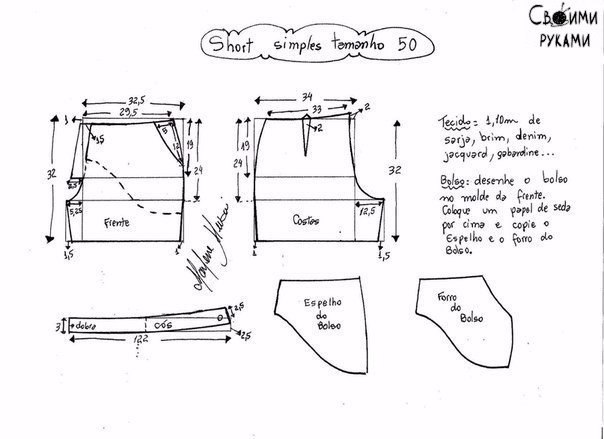 Своими
руками
Short simples tamanho 50
32,5
29,5
1
1,5
5
12
19
24
32
5,25
Frente
1,5
1
34
33
2
2
19
24
32
12,5
Costas
1
1,5
Tecido: 1,10m de
sarja, brim, denim,
jacquard, gabardine...
Bolso: desenhe o bolso
no molde da frente.
Coloque um papel de seda
por cima e copie o
Espelho e o forro do
Bolso.
3
dobra
cós
122
2,5
2,5
Espelho
do
Bolso
Forro
do
Bolso